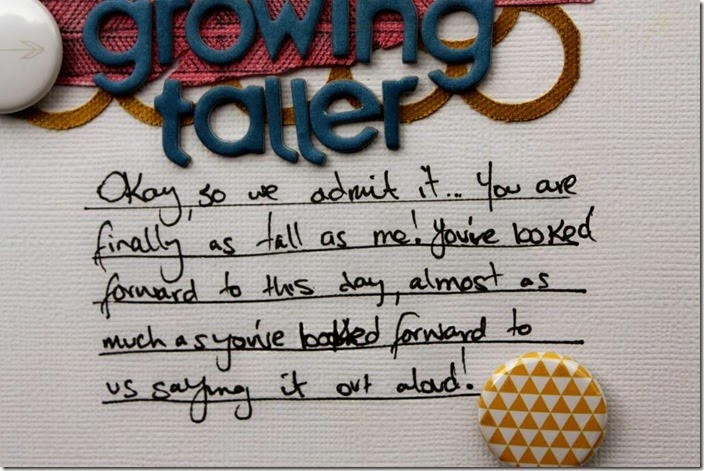 growing
taller
Okay, so we admit it... You are
finally as tall as me! You've looked
forward to this day, almost as
much as you've looked forward to
us saying it out aloud!